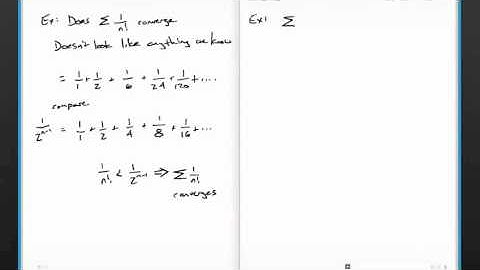 Ex: Does Σ 1/n! converge
Doesn't look like anything we know
= 1/1 + 1/2 + 1/6 + 1/24 + 1/120 + ....
compare
1/2^(n-1) = 1/1 + 1/2 + 1/4 + 1/8 + 1/16 + ...
1/n! < 1/2^(n-1) ⇒ Σ 1/n!
converges
Ex: Σ